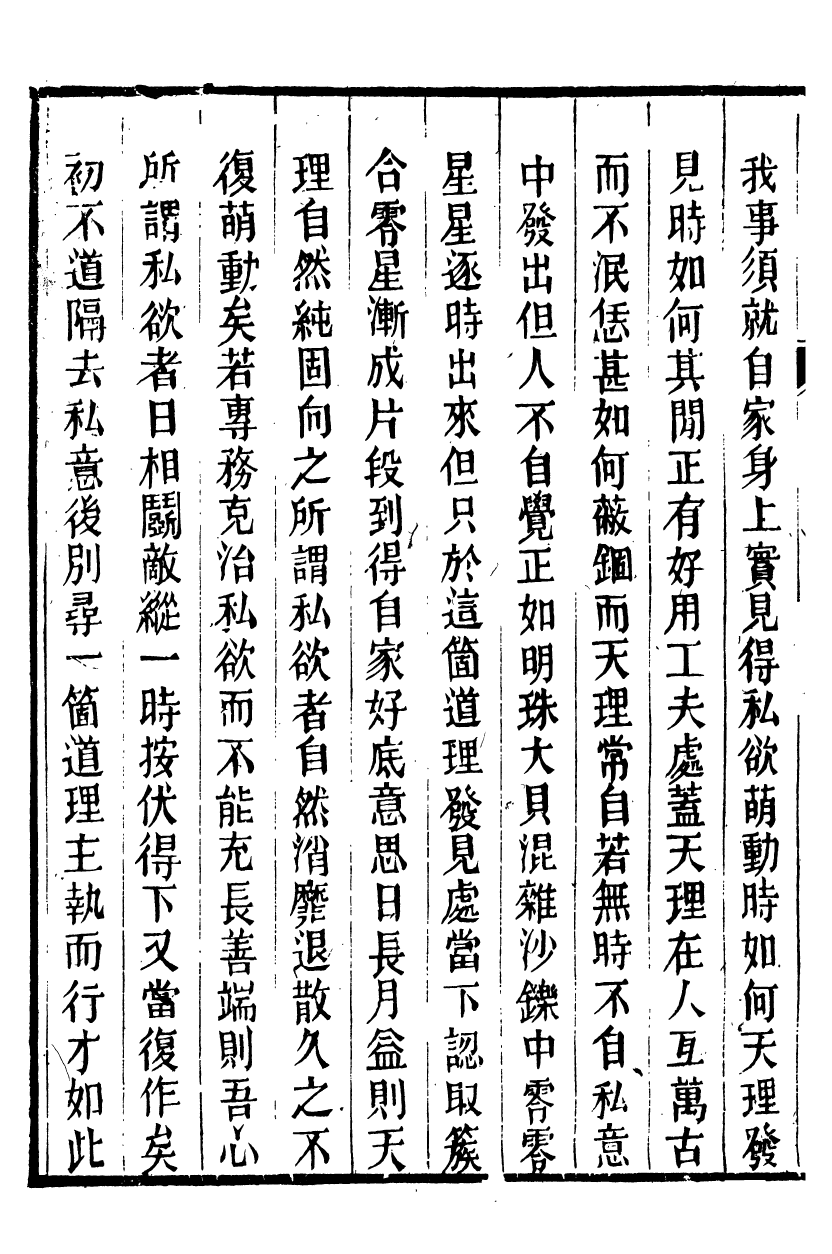 我事須就自家身上實見得私欲萌動時如何天理發
見時如何其閒正有好用工夫處蓋天理在人亙萬古
而不泯恁甚如何蔽錮而天理常自若無時不自私意
中發出但人不自覺正如明珠大貝混雜沙鑠中零零
星星逐時出來但只於這箇道理發見處當下認取簇
合零星漸成片段到得自家好底意思日長月益則天
理自然純固向之所謂私欲者自然消靡退散久之不
復萌動矣若專務克治私欲而不能充長善端則吾心
所謂私欲者日相鬭敵縱一時按伏得下又當復作矣
初不道隔去私意後別尋一箇道理主執而行才如此